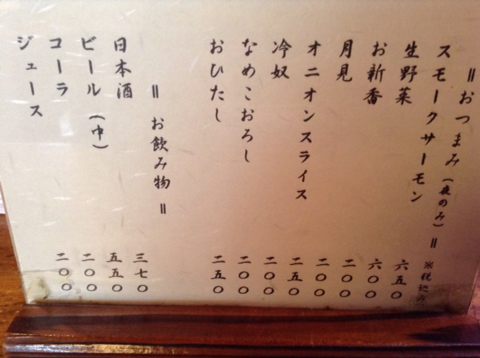 =おつまみ(夜のみ)= ※税込み
スモークサーモン 六五〇
生野菜 六〇〇
お新香 二〇〇
月見 二〇〇
オニオンスライス 二五〇
冷奴 二〇〇
なめこおろし 二〇〇
おひたし 二五〇
=お飲み物=
日本酒 三七〇
ビール(中) 五五〇
コーラ 二〇〇
ジュース 二〇〇